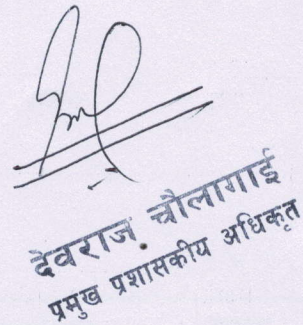 देवराज चौलागाई
प्रमुख प्रशासकीय अधिकृत